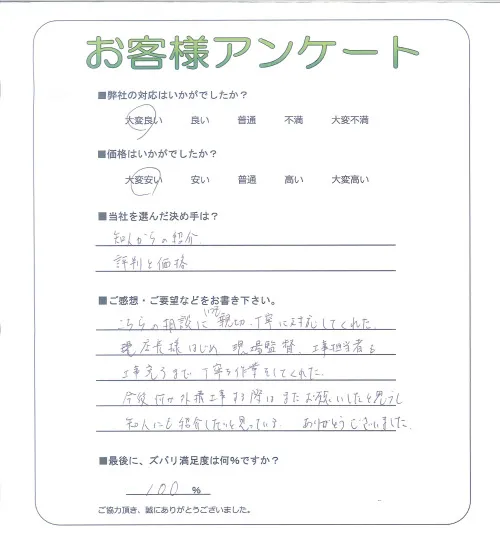 お客様アンケート
■弊社の対応はいかがでしたか？
大変良い 良い 普通 不満 大変不満
■価格はいかがでしたか？
大変安い 安い 普通 高い 大変高い
■当社を選んだ決め手は？
知人からの紹介
評判と価格
■ご感想・ご要望などをお書き下さい。
こちらの相談にいつも親切、丁寧に対応してくれた。
店長様はじめ 現場監督、工事担当者も
工事完了まで 丁寧な作業をしてくれた。
今後何か外構工事する際はまたお願いしたいと思うし
知人にも紹介したいと思っている。 ありがとうございました。
■最後に、ズバリ満足度は何％ですか？
100 ％
ご協力頂き、誠にありがとうございました。